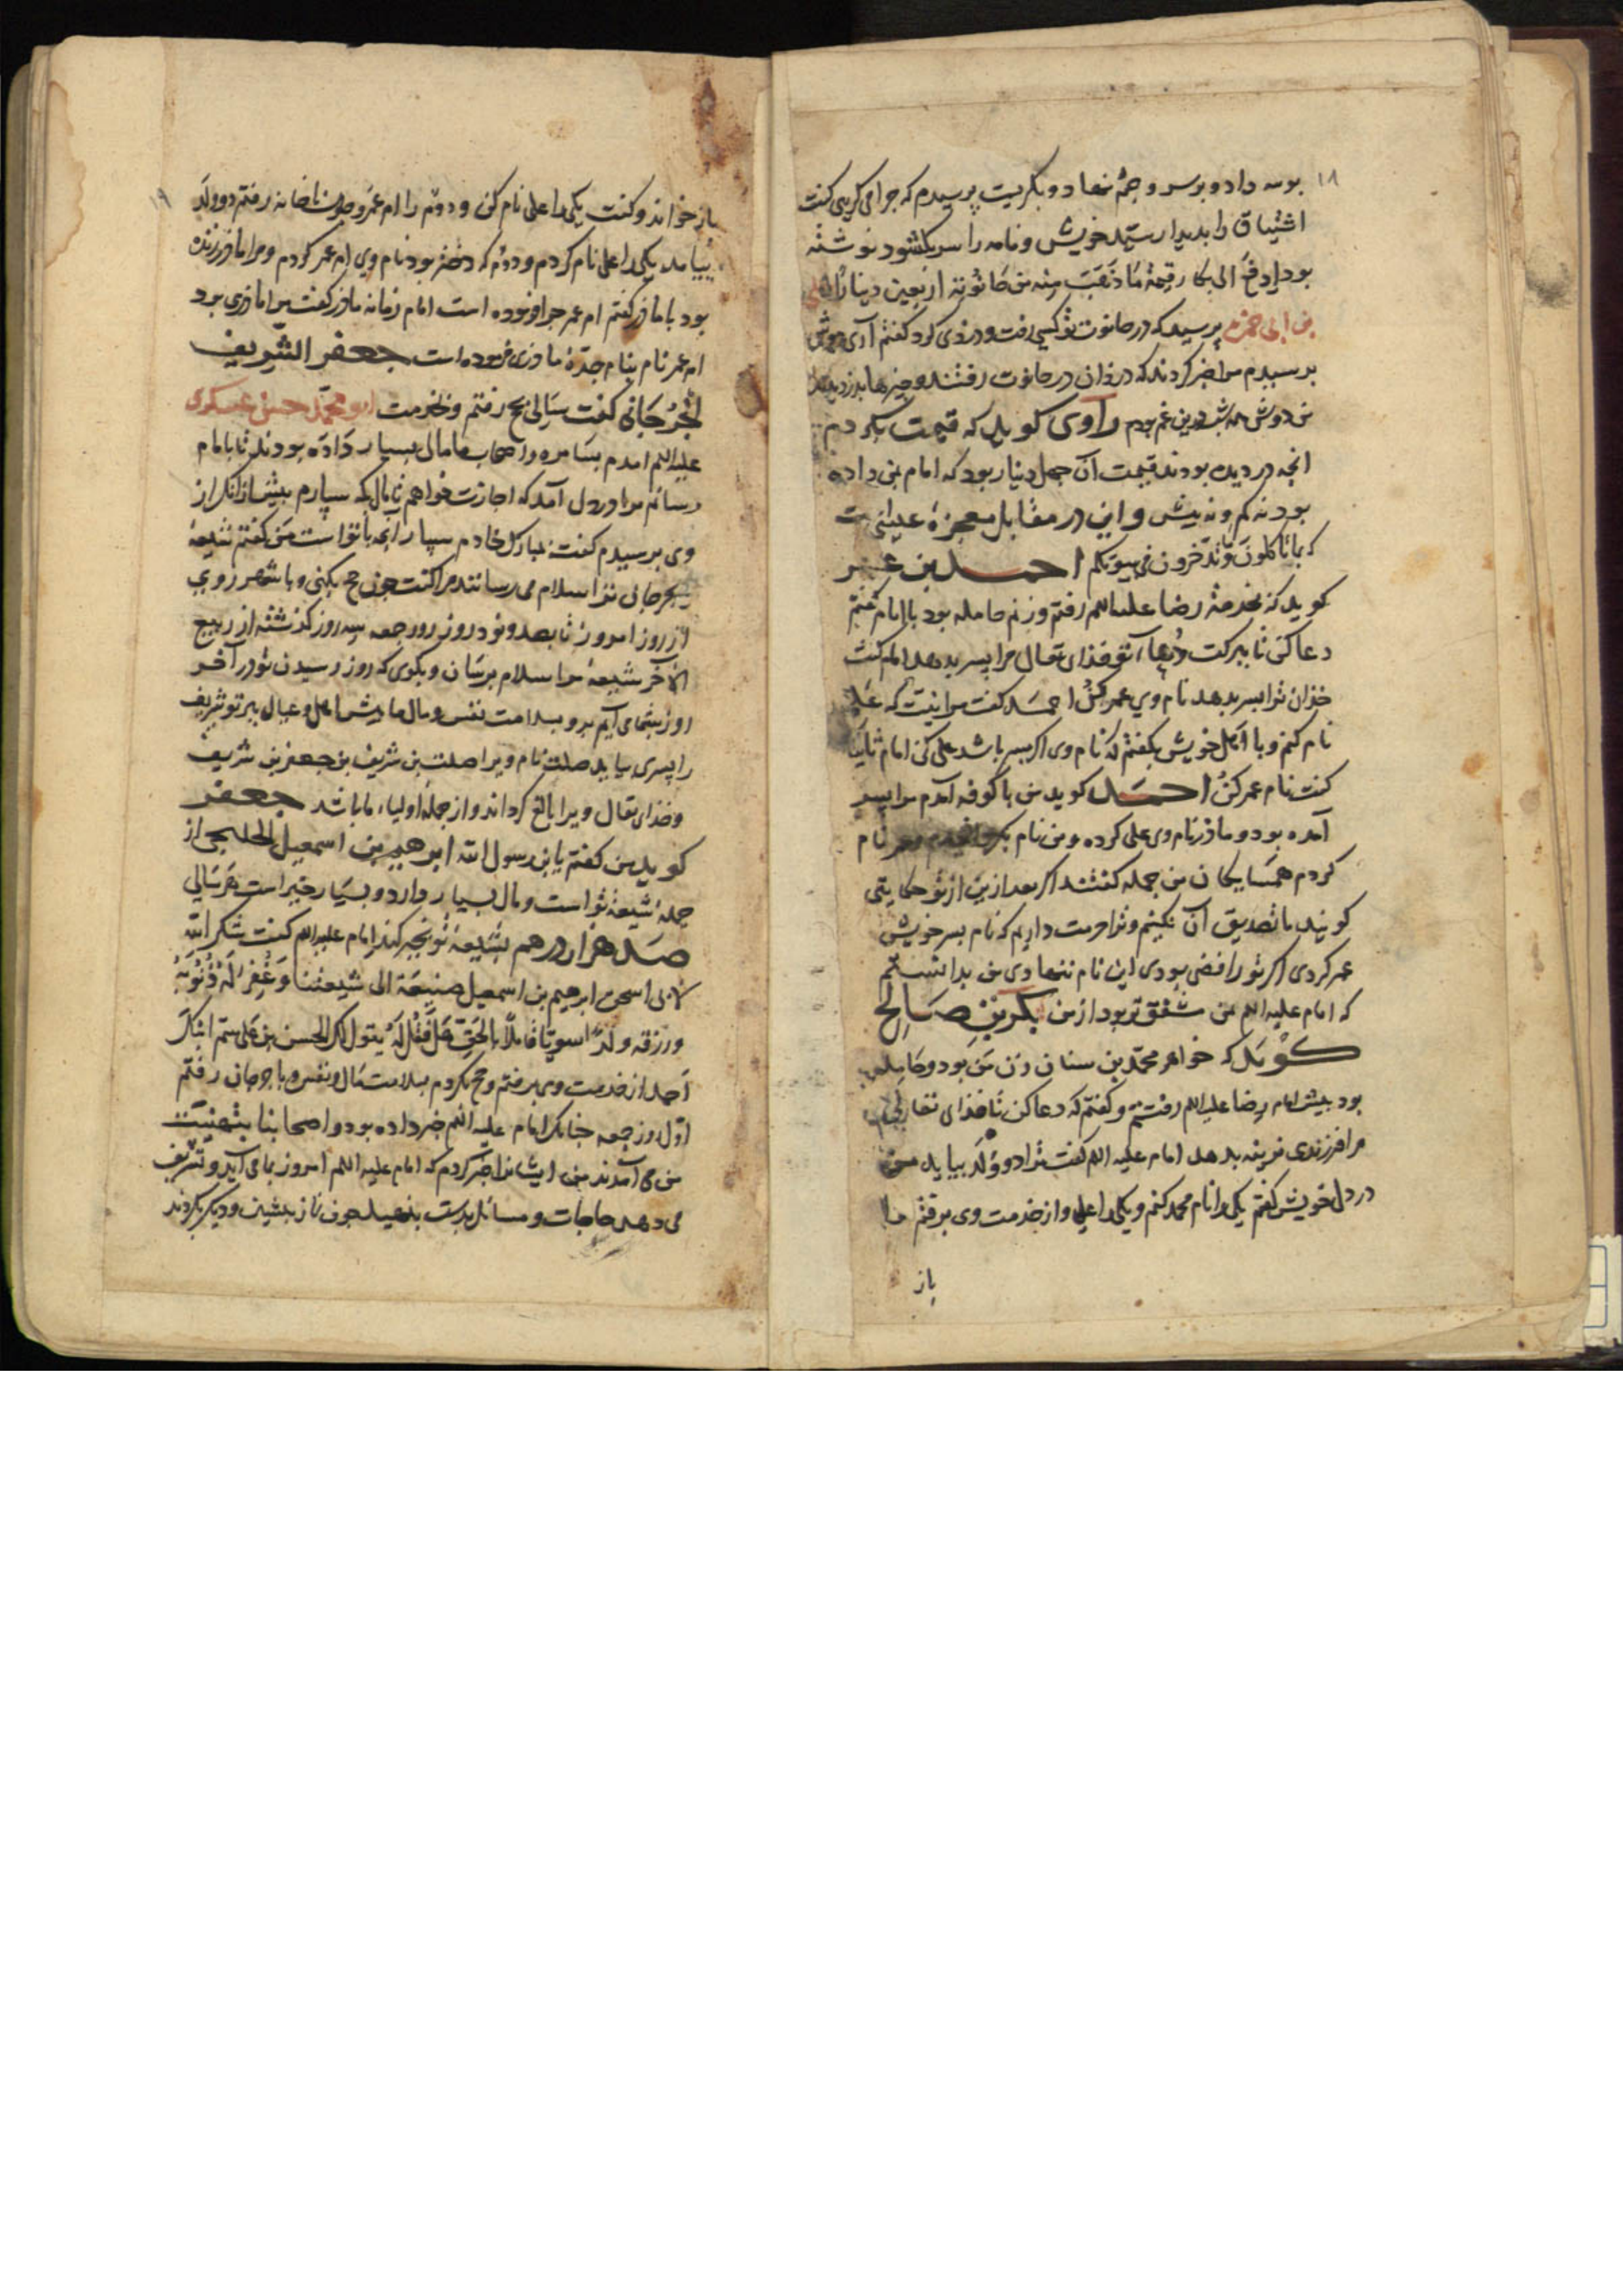 ۱۸
بوسه داد و بر سر و چشم نهاد و بگریست پرسیدم که چرا می‌گریی گفت
اشتیاق را بدیدار سیّد خویش و نامه را سر بگشود نوشته
بود ادفع الی بکار قیمة ما ذهبت من حانوته اربعین دینارا
بن ابی حمزه پرسید که در حانوت تو کسی رفت و دزدی کرد گفتم آری
برسیدم مرا خبر کردند که دزدان در حانوت رفتند و چیزها
من دوش همه شب درین غم بودم راوی گوید که قیمت بکردم
انچه دزدیده بودند قیمت آن چهل دینار بود که امام بمن داده
بود نه کم و نه بیش و این در مقابل معجزهٔ عیسی است
که بما تاکلون و ما تدخرون فی بیوتکم احمد بن عمر
گوید که بخدمت رضا علیه السلم رفتم و زنم حامله بود با امام گفتم
دعا کن تا ببرکت دعاء تو خذای تعالی مرا پسر بدهد امام گفت
خذای ترا پسر بدهد نام وی عمر کن احمد گفت مرا نیت که علی
نام کنم و با اهل خویش بگفتم که نام وی اگر پسر باشد علی کن امام ثانیا
گفت نام عمر کن احمد گوید من با کوفه آمدم مرا پسر
آمده بود و ماذر نام وی علی کرده و من نام عمر نام
کردم همسایگان من جمله گفتند اگر بعد ازین از تو حکایتی
گویند ما تصدیق آن نکنیم و ترا حرمت داریم که نام پسر خویش
عمر کردی اگر تو رافضی بودی این نام ننهادی من بدانستم
که امام علیه السلم بمن مشفق‌تر بود از من بکر بن صالح
گوید که خواهر محمد بن سنان زن من بود و حامله
بود پیش امام رضا علیه السلم رفتم و گفتم که دعا کن تا خذای تعالی
مرا فرزندی نرینه بدهد امام علیه السلم گفت ترا دو ولد بیاید من
در دل خویش گفتم یکی را نام محمد کنم و یکی را علی و از خدمت وی برفتم مرا
باز
۱۹
باز خواند و گفت یکی را علی نام کن و دوم را ام عمر و چون با خانه رفتم دو ولد
بیامد یکی را علی نام کردم و دوم که دختر بود نام وی ام عمر کردم و مرا ماذر زنده
بود با ماذر گفتم ام عمر چرا فرموده است امام زمانه ماذر گفت مرا ماذری بود
ام عمر نام بنام جدّهٔ ماذری فرموده است جعفر الشریف
الجُرجانی گفت سالی بحج رفتم و بخدمت ابو محمد حسن عسکری
علیه السلم آمدم بسامره و اصحاب ما مال بسیار داده بودند تا بامام
رسانم مرا در دل آمد که اجازت خواهم تا مال بکه سپارم پیش از آنکه از
وی پرسیدم گفت بمبارک خادم سپار آنچه با تو است من گفتم شیعهٔ
بجرجان ترا سلام می‌رسانند مرا گفت چون حج بکنی و با شهر روی
از روز امروز تا بصد و نود روز روز جمعه سه روز گذشته از ربیع
الآخر شیعهٔ مرا سلام برسان و بگوی که روز رسیدن تو در آخر
روز بشما آیم برو بسلامت نفس و مال ما پیش اهل و عیال پسر تو شریف
را پسری بیاید صلت نام ویرا صلت بن شریف بن جعفر بن شریف
و خذای تعالی ویرا بالغ گرداند و از جمله اولیاء ما باشد جعفر
گوید من گفتم یا بن رسول الله ابرهیم بن اسمعیل الخلنجی از
جملهٔ شیعهٔ تو است و مال بسیار دارد و بسیار خیر است هر سالی
صد هزار درهم بشیعهٔ تو بخیر کند امام علیه السلم گفت شکر الله
لابی اسحق ابرهیم بن اسمعیل صنیعة الی شیعتنا و غفر له ذنوبه
و رزقه ولدا سویا قاملا بالحق فقل له یقول لک الحسن بن علی سمّ ابنک
احمد از خدمت وی برفتم و حج بکردم بسلامت مال و نفس و با جرجان رفتم
اول روز جمعه چنانک امام علیه السلم خبر داده بود و اصحابنا بتهنیت
من می‌آمدند من ایشانرا خبر کردم که امام علیه السلم امروز بما می‌آید و تشریف
می‌دهد حاجات و مسائل چون نماز پیشین و دیگر بکردند